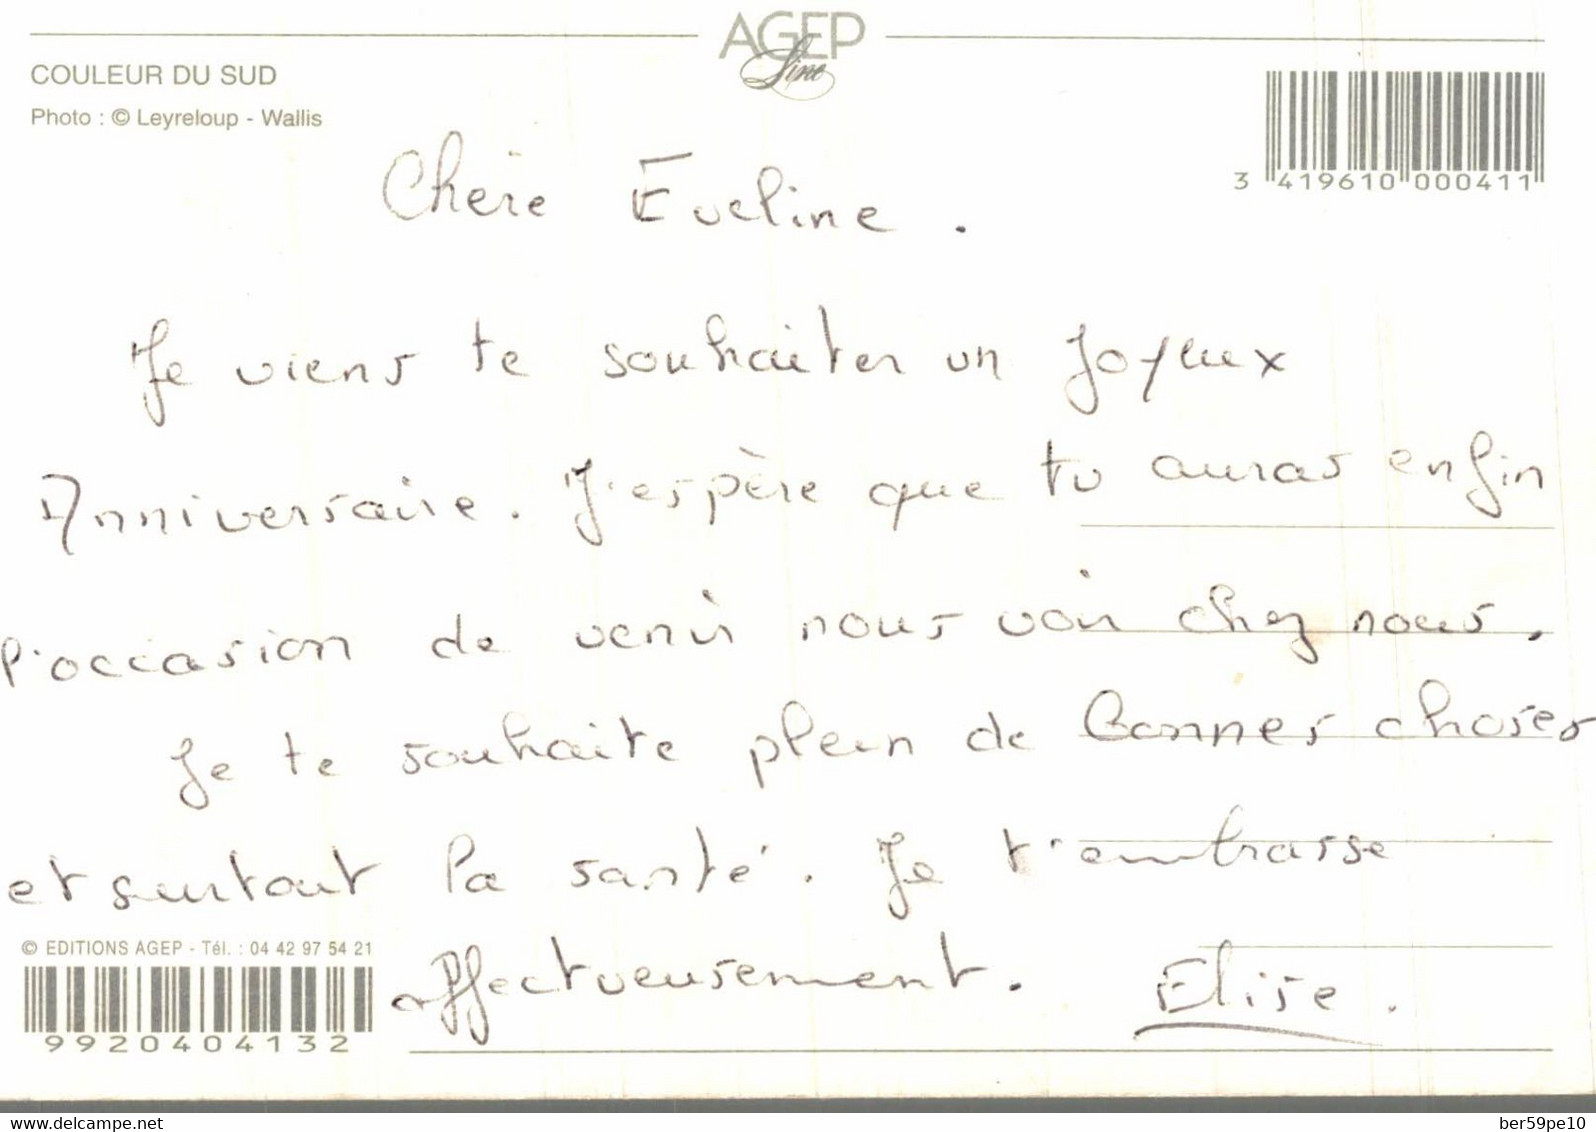 AGEP
Line
COULEUR DU SUD
Photo : © Leyreloup - Wallis
3 419610 000411
Chère Eveline.
Je viens te souhaiter un Joyeux
Anniversaire. J'espère que tu auras enfin
l'occasion de venir nous voir chez nous.
Je te souhaite plein de bonnes choses
et surtout la santé. Je t'embrasse
affectueusement. Elise.
© EDITIONS AGEP - Tél. : 04 42 97 54 21
9920404132
www.delcampe.net
ber59pe10